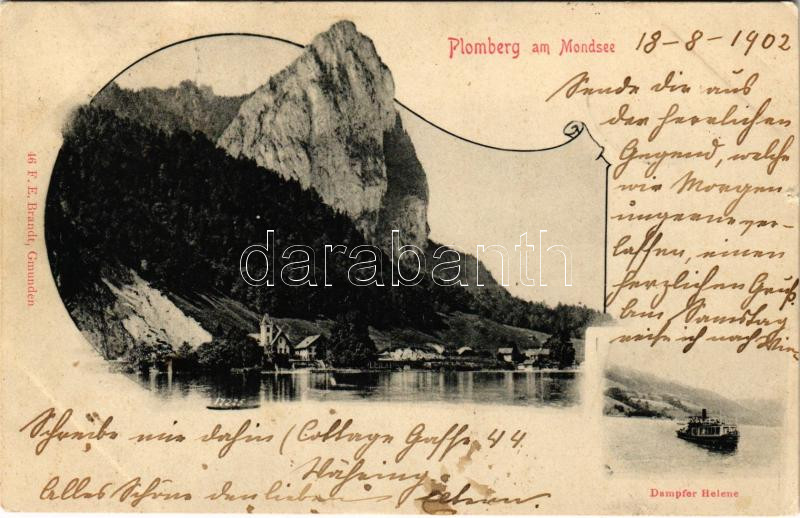 Plomberg am Mondsee
18-8-1902
Sende dir aus
der herrlichen
Gegend, welche
wir Morgen
ungerne ver-
lassen, einen
herzlichen Gruß.
Am Samstag
reise ich nach Wien
46 F. E. Brandt, Gmunden
darabanth
17225
Schreibe mir dahin (Cottage Gasse 44
Währing.
Alles Schöne den lieben Eltern.
Dampfer Helene